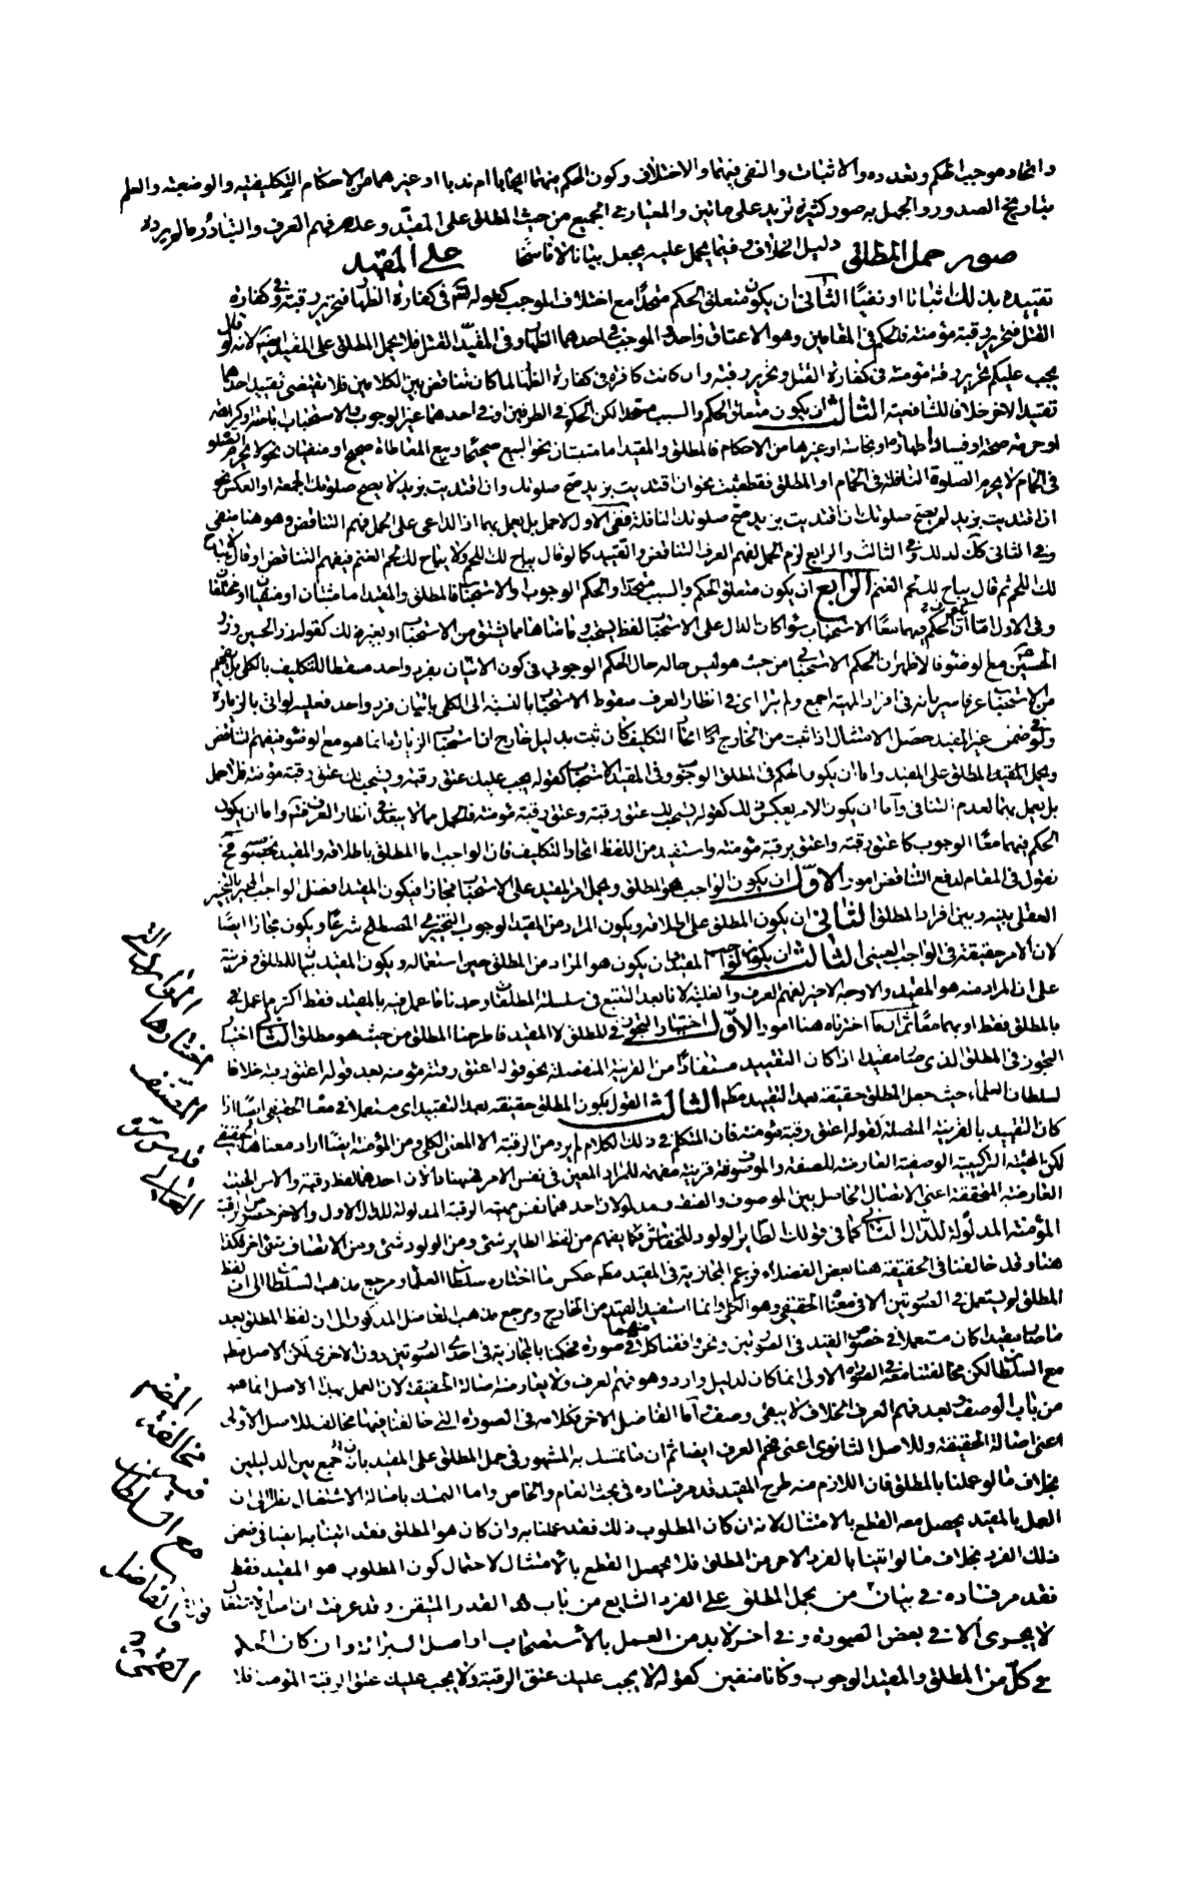 واتحاد موجب الحكم وتعدده والاثبات والنفى فيهما والاختلاف وكون الحكم فيهما ايجابا ام ندبا او غيرهما من الاحكام التكليفيه والوضعيه والعلم
بتاريخ الصدور والجهل به صور كثيره تزيد على ماتين والمعيار فى الجميع من حيث المطلق على المقيد وعدمه فهم العرف والتبادر
صور حمل المطلق دليل الخلاف وفيما يحمل عليه يجعل بيانا لا ناسخا على المقيد
تقييده بذلك اثباتا او نفيا الثانى ان يكون متعلق الحكم متحدا مع اختلاف الموجب كقوله تعالى فى كفارة الظهار فتحرير رقبة وفى كفارة
القتل فتحرير رقبة مؤمنة فالحكم فى المقامين وهو الاعتاق واحد والموجب فى احدهما الظهار وفى المقيد القتل فلا يحمل المطلق على المقيد لانه لو قال
يجب عليكم تحرير رقبة مؤمنة فى كفارة القتل وتحرير رقبة وان كانت كافرة فى كفارة الظهار لما كان تناقض بين الكلامين فلا يقتضى تقييد احدهما
تقييد الاخر خلافا للشافعية الثالث ان يكون متعلق الحكم والسبب متحدا لكن الحكم فى الطرفين او فى احدهما غير الوجوب والاستحباب
او حرمة صحة او فساد او طهارة او نجاسة او غيرها من الاحكام فالمطلق والمقيد اما مثبتان نحو البيع صحيح وبيع المعاطاة صحيح او منفيان نحو لا يحرم الصلوة
فى الحمام لا يحرم الصلوة النافلة فى الحمام او المطلق فقط مثبت نحو ان اقتديت بزيد صح صلوتك وان اقتديت بزيد لا يصح صلوتك الجمعة او العكس نحو
ان اقتديت بزيد لم يصح صلوتك ان اقتديت بزيد صح صلوتك النافلة ففى الاول لا حمل بل يعمل بهما اذ الداعى على الحمل فهم التناقض وهو هنا منفى
وفى الثانى كك لذلك وفى الثالث والرابع لزم الحمل لفهم العرف التناقض والتقييد كما لو قال يباح لك اللحم ولا يباح لك لحم الغنم فيفهم التناقض او قال لا يباح
لك اللحم ثم قال يباح لك لحم الغنم الرابع ان يكون متعلق الحكم والسبب متحدا والحكم الوجوب والاستحباب فالمطلق والمقيد اما مثبتان او منفيان او مختلفان
وفى الاول اما ان الحكم فيهما معا الاستحباب سواء كان الدال على الاستحباب لفظ يستحب وما ضاهاها مما يشتق من الاستحباب او بغير ذلك كقوله زر الحسين وزر
الحسين مع الوضوء فالاظهر ان الحكم الاستحبابى من حيث هو ليس حاله حال الحكم الوجوبى فى كون الاتيان بفرد واحد مسقطا للتكليف بالكلى بل يفهم
من الاستحباب عرفا سريانه فى افراد المهية اجمع ولم يتراى فى انظار العرف سقوط الاستحباب بالنسبة الى الكلى باتيان فرد واحد فعليه لو اتى بالزيارة
ولو فى ضمن غير المقيد حصل الامتثال اذا ثبت من الخارج اتحاد التكليف كان ثبت بدليل خارج ان استحباب الزيارة انما هو مع الوضوء فيفهم التناقض
ويحمل المطلق على المقيد واما ان يكون الحكم فى المطلق الوجوب وفى المقيد الاستحباب كقوله يجب عليك عتق رقبة ويستحب لك عتق رقبة مؤمنة فلا حمل
بل يعمل بهما لعدم التنافى واما ان يكون الامر بعكس ذلك كقوله يستحب لك عتق رقبة وعتق رقبة مؤمنة فالحمل مما لا يبعد فى انظار العرف واما ان يكون
الحكم فيهما معا الوجوب كاعتق رقبة واعتق رقبة مؤمنة واستفيد من اللفظ اتحاد التكليف فان الواجب اما المطلق باطلاقه والمقيد
نقول فى المقام لدفع التناقض امور الاول ان يكون الواجب هو المطلق ويحمل امر المقيد على الاستحباب مجازا فيكون المقيد افضل الواجب المخير بالتخيير
العقلى بينه وبين افراد المطلق الثانى ان يكون المطلق على اطلاقه ويكون المراد من المقيد الوجوب التخييرى المصطلح شرعا ويكون مجازا ايضا
لان الامر حقيقة فى الواجب العينى الثالث ان يكون الواجب المقيد بان يكون هو المراد من المطلق حين استعماله ويكون المقيد بيانا للمطلق وقرينة
على ان المراد منه هو المقيد والاوجه الاخير لفهم العرف والغلبة لانا بعد التتبع فى سلسلة المطلقات وجدنا ما عمل فيه بالمقيد فقط اكثر مما عمل فيه
بالمطلق فقط او بهما معا ثم ان ما اخترناه هنا امور الاول اختيار التجوز فى المطلق لا المقيد فاطرحنا المطلق من حيث هو مطلق الثانى اختيار
التجوز فى المطلق الذى صار مقيدا اذا كان التقييد مستفادا من القرينة المنفصلة نحو قوله اعتق رقبة مؤمنة بعد قوله اعتق رقبة خلافا
لسلطان العلماء حيث جعل المطلق حقيقة بعد التقييد مطلقا الثالث القول بكون المطلق حقيقة بعد التقييد اى مستعملا فى معناه الحقيقى ايضا اذا
كان التقييد بالقرينة المتصلة كقوله اعتق رقبة مؤمنة فان المتكلم فى ذلك الكلام لم يرد من الرقبة الا المعنى الكلى ومن المؤمنة ايضا اراد معناها الحقيقى
لكن الهيئة التركيبية الوصفية العارضة للصفة والموصوف قرينة مفهمة للمراد المعين فى نفس الامر فهنا دالان احدهما لفظ رقبة والاخر الهيئة
العارضة المحققة اعنى الاتصال الحاصل بين الموصوف والصفة ومدلولان احدهما نفس مهية الرقبة المدلولة للدال الاول والاخر خصوص الرقبة
المؤمنة المدلولة للدال الثانى كما فى قولك الطاير الولود للخفاش فما يفهم من لفظ الطاير شئ ومن الولود شئ ومن الاتصاف شئ اخر فكذا
هنا وقد خالفنا فى الحقيقة هنا بعض الفضلاء فزعم المجازية فى المقيد مطلقا عكس ما اختاره سلطان العلماء ومرجع مذهب السلطان الى ان لفظ
المطلق لم يستعمل فى الصورتين الا فى معناه الحقيقى وهو الكلى وانما استفيد القيد من الخارج ومرجع مذهب الفاضل المذكور الى ان لفظ المطلق بعد
ما صار مقيدا كان مستعملا فى خصوص المقيد فى الصورتين ونحن وافقنا كلا منهما فى صورة فحكمنا بالمجازية فى احدى الصورتين دون الاخرى لكن الاصل
مع السلطان لكن مخالفتنا معه فى الصورة الاولى انما كان لدليل وارد وهو فهم العرف ولا يعارضه اصالة الحقيقة لان العمل بهذا الاصل انما هو
من باب الوصف وبعد فهم العرف الخلاف لا يبقى وصف اما الفاضل الاخر فكلامه فى الصورة التى خالفنا فيها مخالف للاصل الاولى
اعنى اصالة الحقيقة وللاصل الثانوى اعنى فهم العرف ايضا ثم ان ما تمسك به المشهور فى حمل المطلق على المقيد بانه جمع بين الدليلين
بخلاف ما لو عملنا بالمطلق فان اللازم منه طرح المقيد قد مر فساده فى بحث العام والخاص واما التمسك باصالة الاشتغال نظرا الى ان
العمل بالمقيد يحصل معه القطع بالامتثال لانه ان كان المطلوب ذلك فقد عملنا به وان كان هو المطلق فقد اتينا به ايضا فى ضمن
ذلك الفرد بخلاف ما لو اتينا بالفرد الاخر من المطلق فلا يحصل القطع بالامتثال لاحتمال كون المطلوب هو المقيد فقط
فقد مر فساده فى بيان من يحمل المطلق على الفرد الشايع من باب القدر المتيقن وقد عرفت ان اصالة الاشتغال
لا يجرى الا فى بعض الصور وفى اخر لا بد من العمل بالاستصحاب او اصل البرائة وان كان الحكم
فى كل من المطلق والمقيد الوجوب وكانا منفيين كقوله لا يجب عليك عتق الرقبة ولا يجب عليك عتق الرقبة المؤمنة فلا
امور التى
اختارها
المصنف
قدس سره
العالى
المضمر
مخالفته
مع السلطان
والفاضل